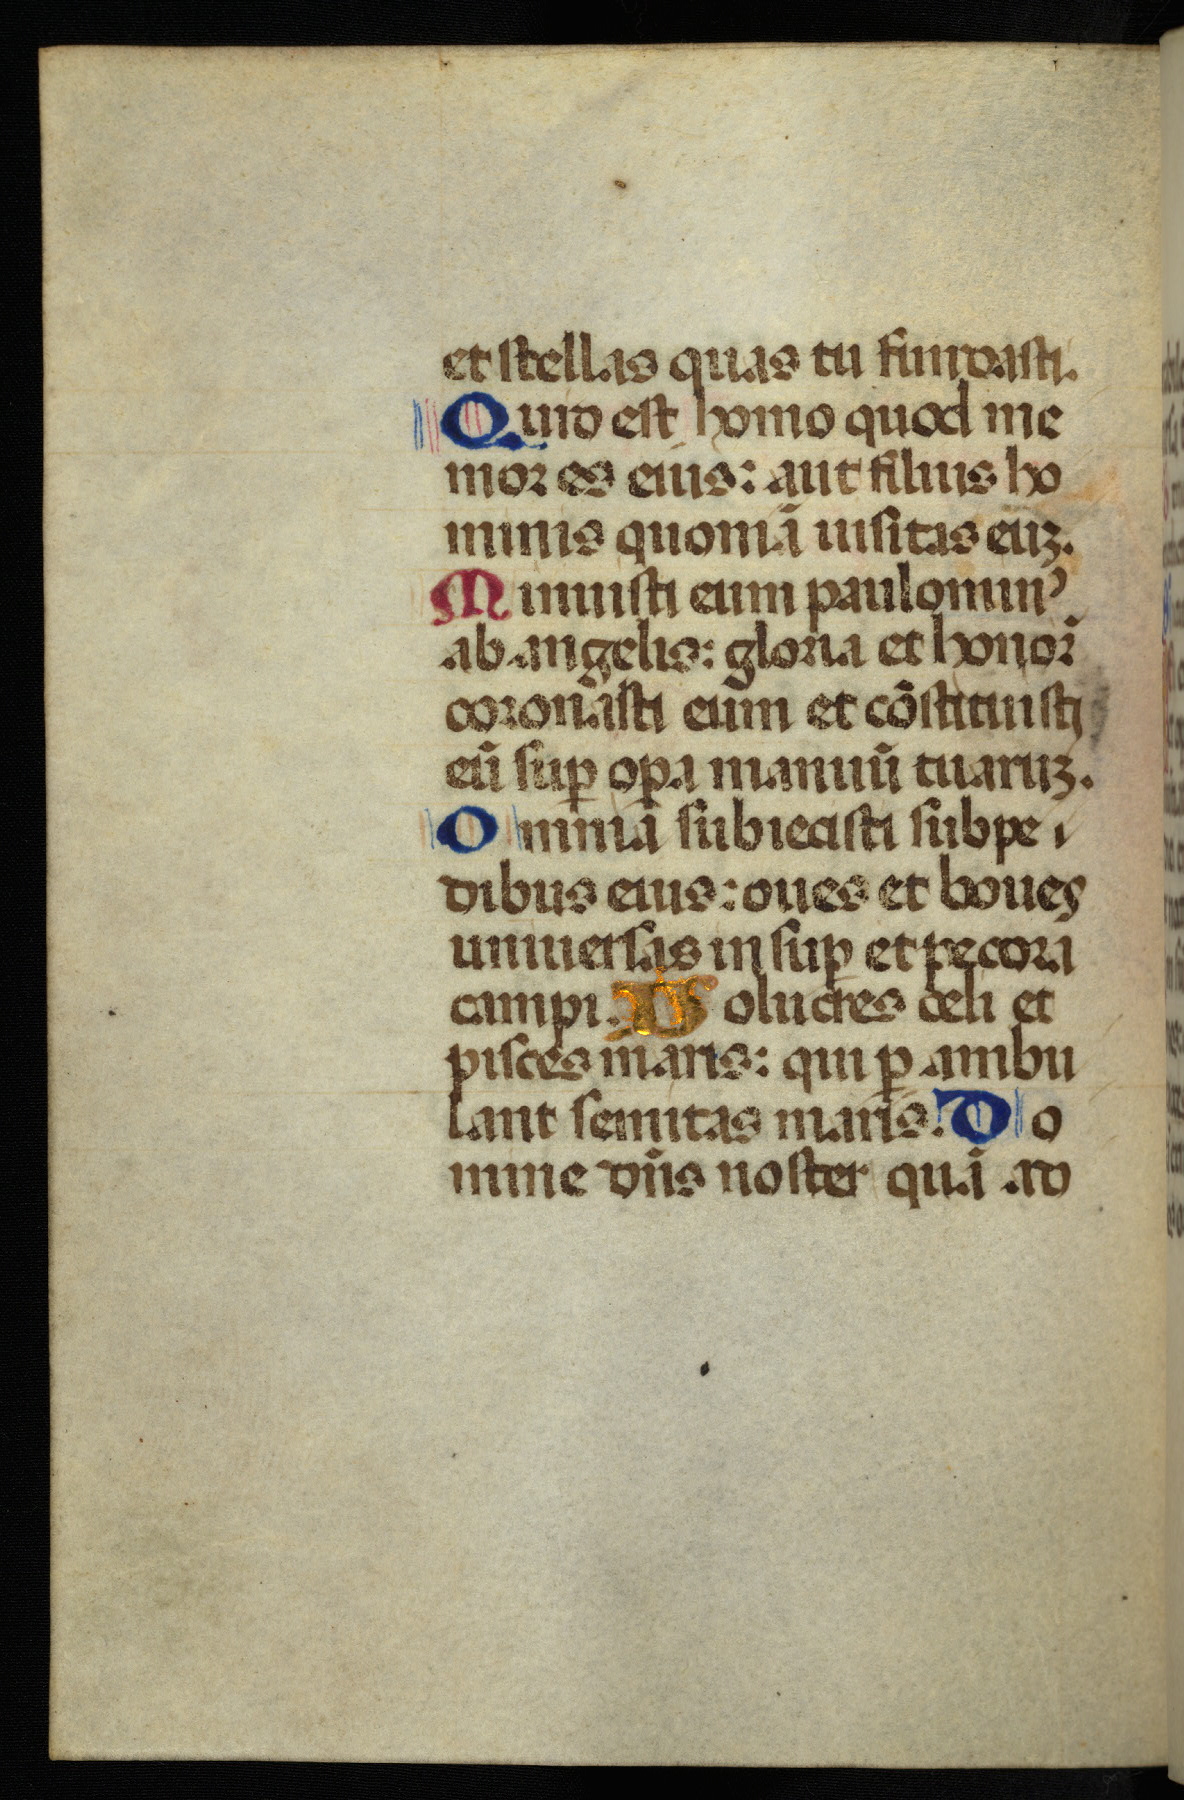 et stellas quas tu fundasti.
Quid est homo quod me
mor es eius: aut filius ho
minis quoniā uisitas euꝫ.
Minuisti eum paulominꝰ
ab angelis: gloria et honor̄
coronasti eum et cōstituisti
eū suꝑ oꝑa manuū tuaruꝫ.
Omnia subiecisti subpe
dibus eius: oues et boues
uniuersas insuꝑ et pecora
campi. Volucres celi et
pisces maris: qui ꝑ ambu
lant semitas maris. Do
mine dn̄s noster quā ad